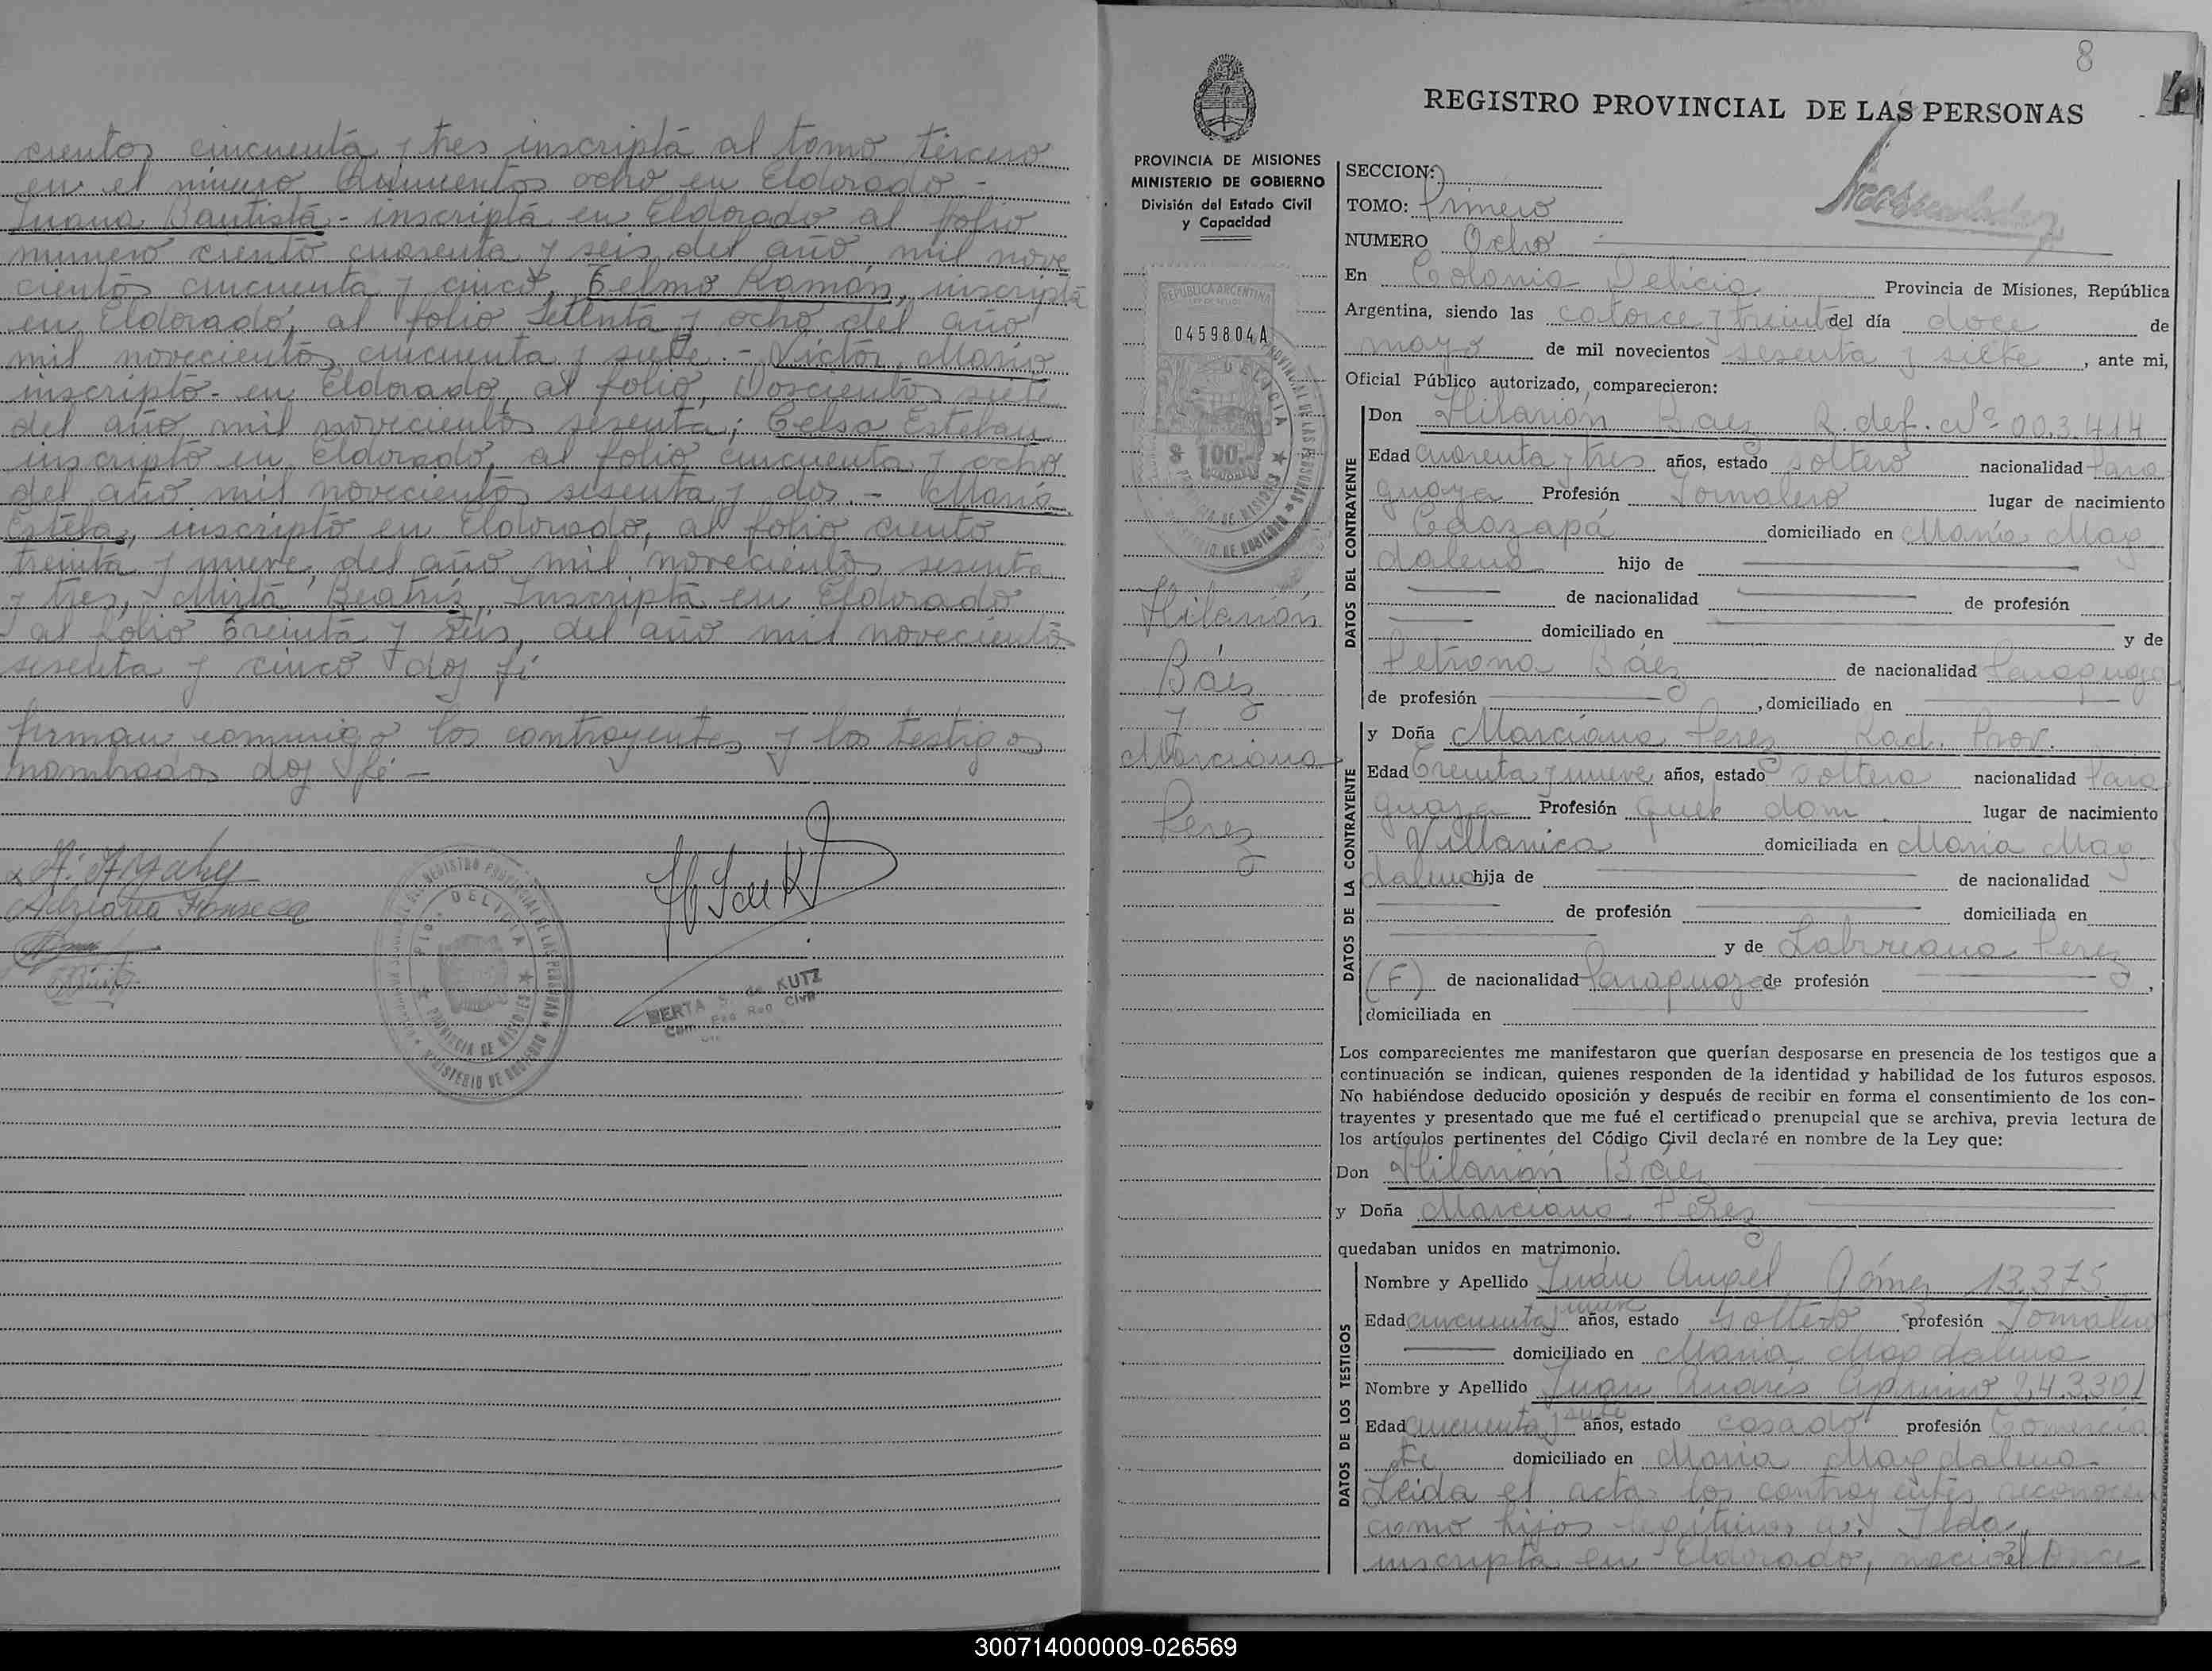 cientos cincuenta y tres inscriptá al tomo tercero
en el número Quinientos ocho en Eldorado -
Juana Bautistá - inscriptá en Eldorado al folio
número ciento cuarenta y seis del año mil nove
cientos cincuenta y cinco, Telmo Ramón, inscriptá
en Eldorado, al folio Setenta y ocho del año
mil novecientos cincuenta y siete. - Victor Mario
inscripto - en Eldorado, al folio, Doscientos siete
del año mil novecientos sesenta; Celsa Esteban
inscripto en Eldorado, al folio cincuenta y ocho
del año mil novecientos sesenta y dos. - Maria
Estela, inscripto en Eldorado, al folio ciento
treinta y nueve, del año mil novecientos sesenta
y tres, Mirta Beatriz, Inscripta en Eldorado
al folio Treinta y seis, del año mil novecientos
sesenta y cinco doy fé
firman conmigo los contrayentes y los testigos
nombrados doy fé -
Adriana Fonseca
REGISTRO PROVINCIAL DE LAS PERSONAS
DELICIA
PROVINCIA DE MISIONES
MINISTERIO DE GOBIERNO
BERTA S. de KUTZ
8
REGISTRO PROVINCIAL DE LAS PERSONAS
PROVINCIA DE MISIONES
MINISTERIO DE GOBIERNO
División del Estado Civil
y Capacidad
REPUBLICA ARGENTINA
0459804A
$ 100.-
Hilarión
Báez
y
Marciana
Perez
SECCION:
TOMO: Primero
NUMERO Ocho
En Colonia Delicia Provincia de Misiones, República
Argentina, siendo las catorce y treinta del día doce de
mayo de mil novecientos sesenta y siete, ante mi,
Oficial Público autorizado, comparecieron:
DATOS DEL CONTRAYENTE
Don Hilarión Baez R. def. Nº 003.414
Edad cuarenta y tres años, estado soltero nacionalidad Para
guaya Profesión Jornalero lugar de nacimiento
Caazapá domiciliado en María Mag
dalena hijo de
de nacionalidad de profesión
domiciliado en y de
Petrona Báez de nacionalidad Paraguaya
de profesión , domiciliado en
DATOS DE LA CONTRAYENTE
y Doña Marciana Perez Rad. Prov.
Edad Treinta y nueve años, estado soltera nacionalidad Para
guaya Profesión Queh dom. lugar de nacimiento
Villarrica domiciliada en María Mag
dalena hija de de nacionalidad
de profesión domiciliada en
y de Labreana Perez
(F) de nacionalidad Paraguaya de profesión ,
domiciliada en
Los comparecientes me manifestaron que querían desposarse en presencia de los testigos que a
continuación se indican, quienes responden de la identidad y habilidad de los futuros esposos.
No habiéndose deducido oposición y después de recibir en forma el consentimiento de los con-
trayentes y presentado que me fué el certificado prenupcial que se archiva, previa lectura de
los artículos pertinentes del Código Civil declaré en nombre de la Ley que:
Don Hilarión Báez
y Doña Marciana Perez
quedaban unidos en matrimonio.
DATOS DE LOS TESTIGOS
Nombre y Apellido Juan Angel Gómez 13.375
Edad cincuenta y nueve años, estado soltero profesión Jornalero
domiciliado en María Magdalena
Nombre y Apellido Juan Andrés 2.43.301
Edad cincuenta y siete años, estado casado profesión Comercia
te domiciliado en María Magdalena
Leida el acta los contrayentes reconocen
como hijos legítimos a: Ilda,
inscripta en Eldorado, nació el Once
300714000009-026569